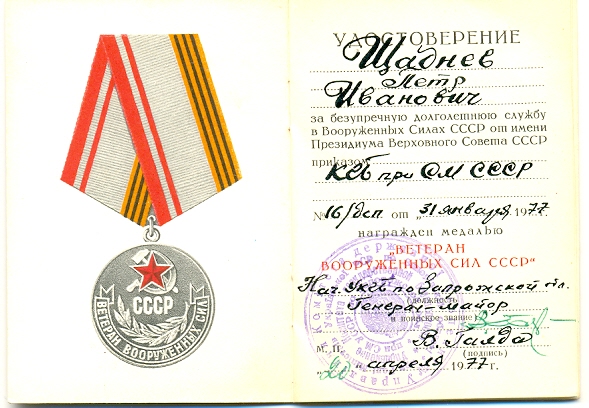 СССР
ВЕТЕРАН ВООРУЖЕННЫХ СИЛ
УДОСТОВЕРЕНИЕ
Щаднев
Петр
Иванович
за безупречную долголетнюю службу
в Вооруженных Силах СССР от имени
Президиума Верховного Совета СССР
приказом
КГБ при СМ СССР
№ 16/дсп от „31 января 1977
награжден медалью
"ВЕТЕРАН
ВООРУЖЕННЫХ СИЛ СССР"
Нач. УКГБ по Запорожской обл.
(должность
Генерал-майор
и воинское звание)
В. Галда
М. П. (подпись)
„20 " апреля 1977 г.